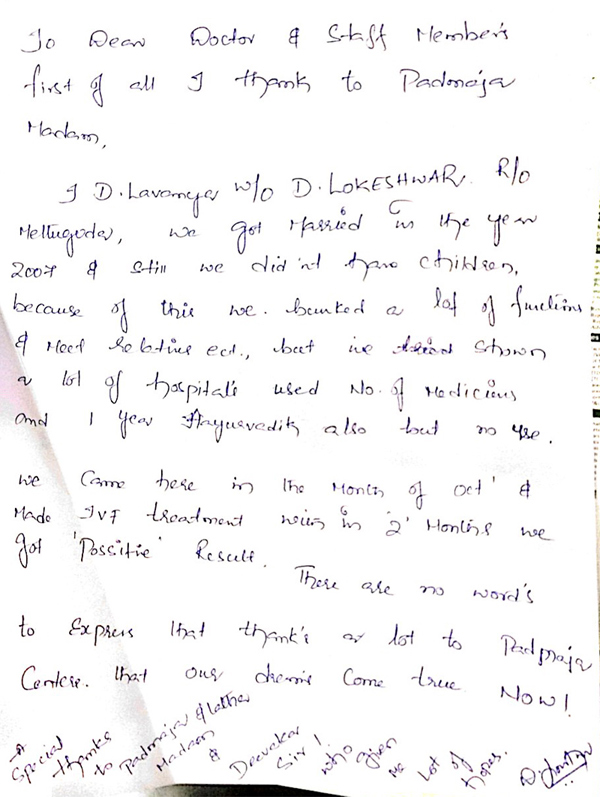 To Dear Doctor & Staff Member's
first of all I thank to Padmaja
Madam,
I D. Lavanya W/o D. LOKESHWAR. R/o
Mettuguda, we got Married in the year
2007 & still we did'nt have children,
because of this we. bunked a lot of functions
& Meet Relative ect., but we shown
a lot of hospital's used No. of Medicins
and 1 year Hayurvedik also but no use.
we Came here in the Month of Oct' &
Made IVF treatment with in '2' Months we
got 'Possitie' Result.
There are no word's
to Express that thank's a lot to Padmaja
Centere. that our dream Come true NOW!
A Special thanks to Padmaja & Latha Madam & Deevakar Sir! who given me lot of hopes.